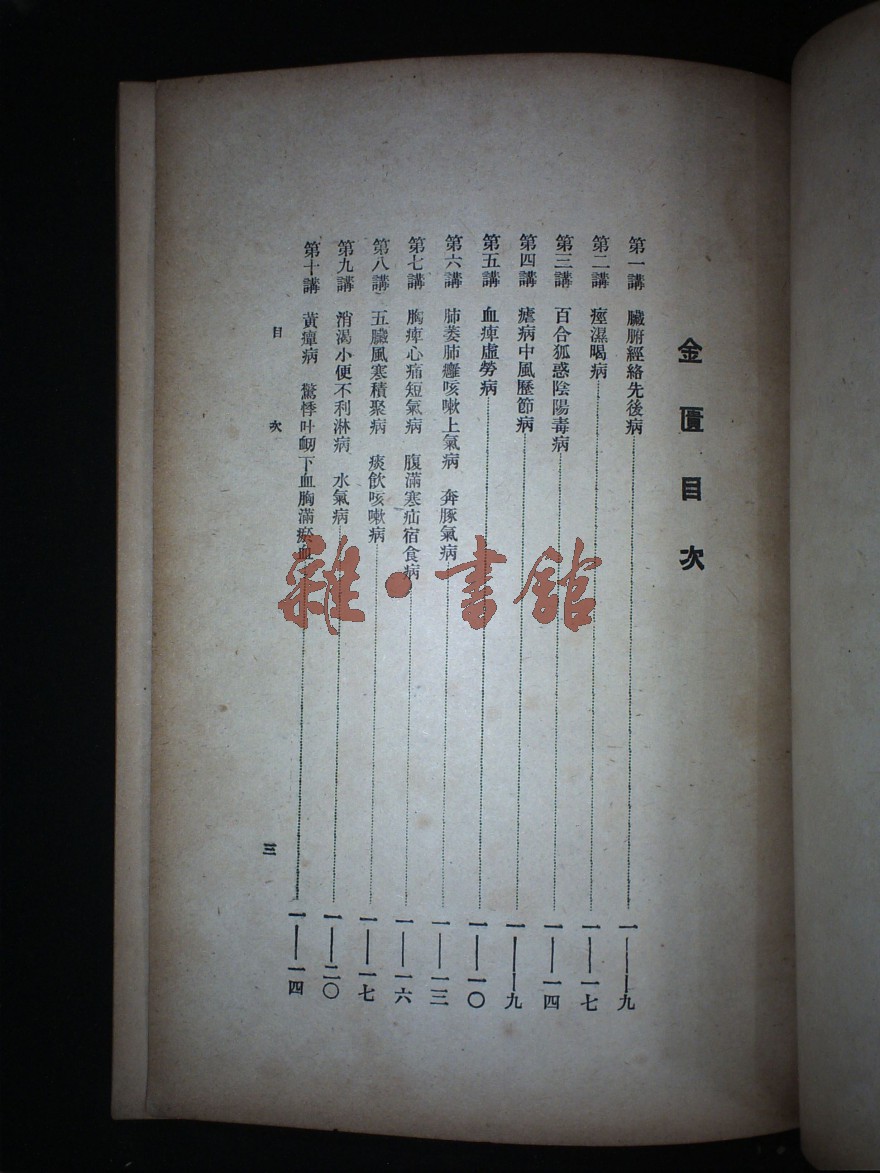 金匱目次
第一講 臟腑經絡先後病 一——九
第二講 痙濕暍病 一——一七
第三講 百合狐惑陰陽毒病 一——一四
第四講 瘧病中風歷節病 一——九
第五講 血痺虛勞病 一——一〇
第六講 肺萎肺癰咳嗽上氣病 奔豚氣病 一——一三
第七講 胸痺心痛短氣病 腹滿寒疝宿食病 一——一六
第八講 五臟風寒積聚病 痰飲咳嗽病 一——一七
第九講 消渴小便不利淋病 水氣病 一——二〇
第十講 黃癉病 驚悸吐衂下血胸滿瘀血 一——一四
目次 三
雜·書館